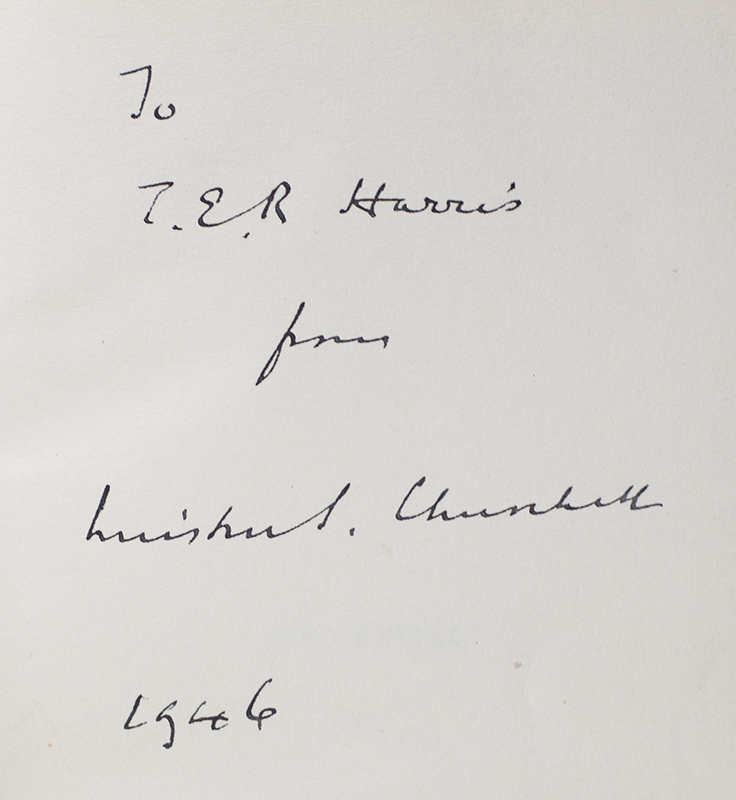 To
T.E.R Harris
from
Winston S. Churchill
1946